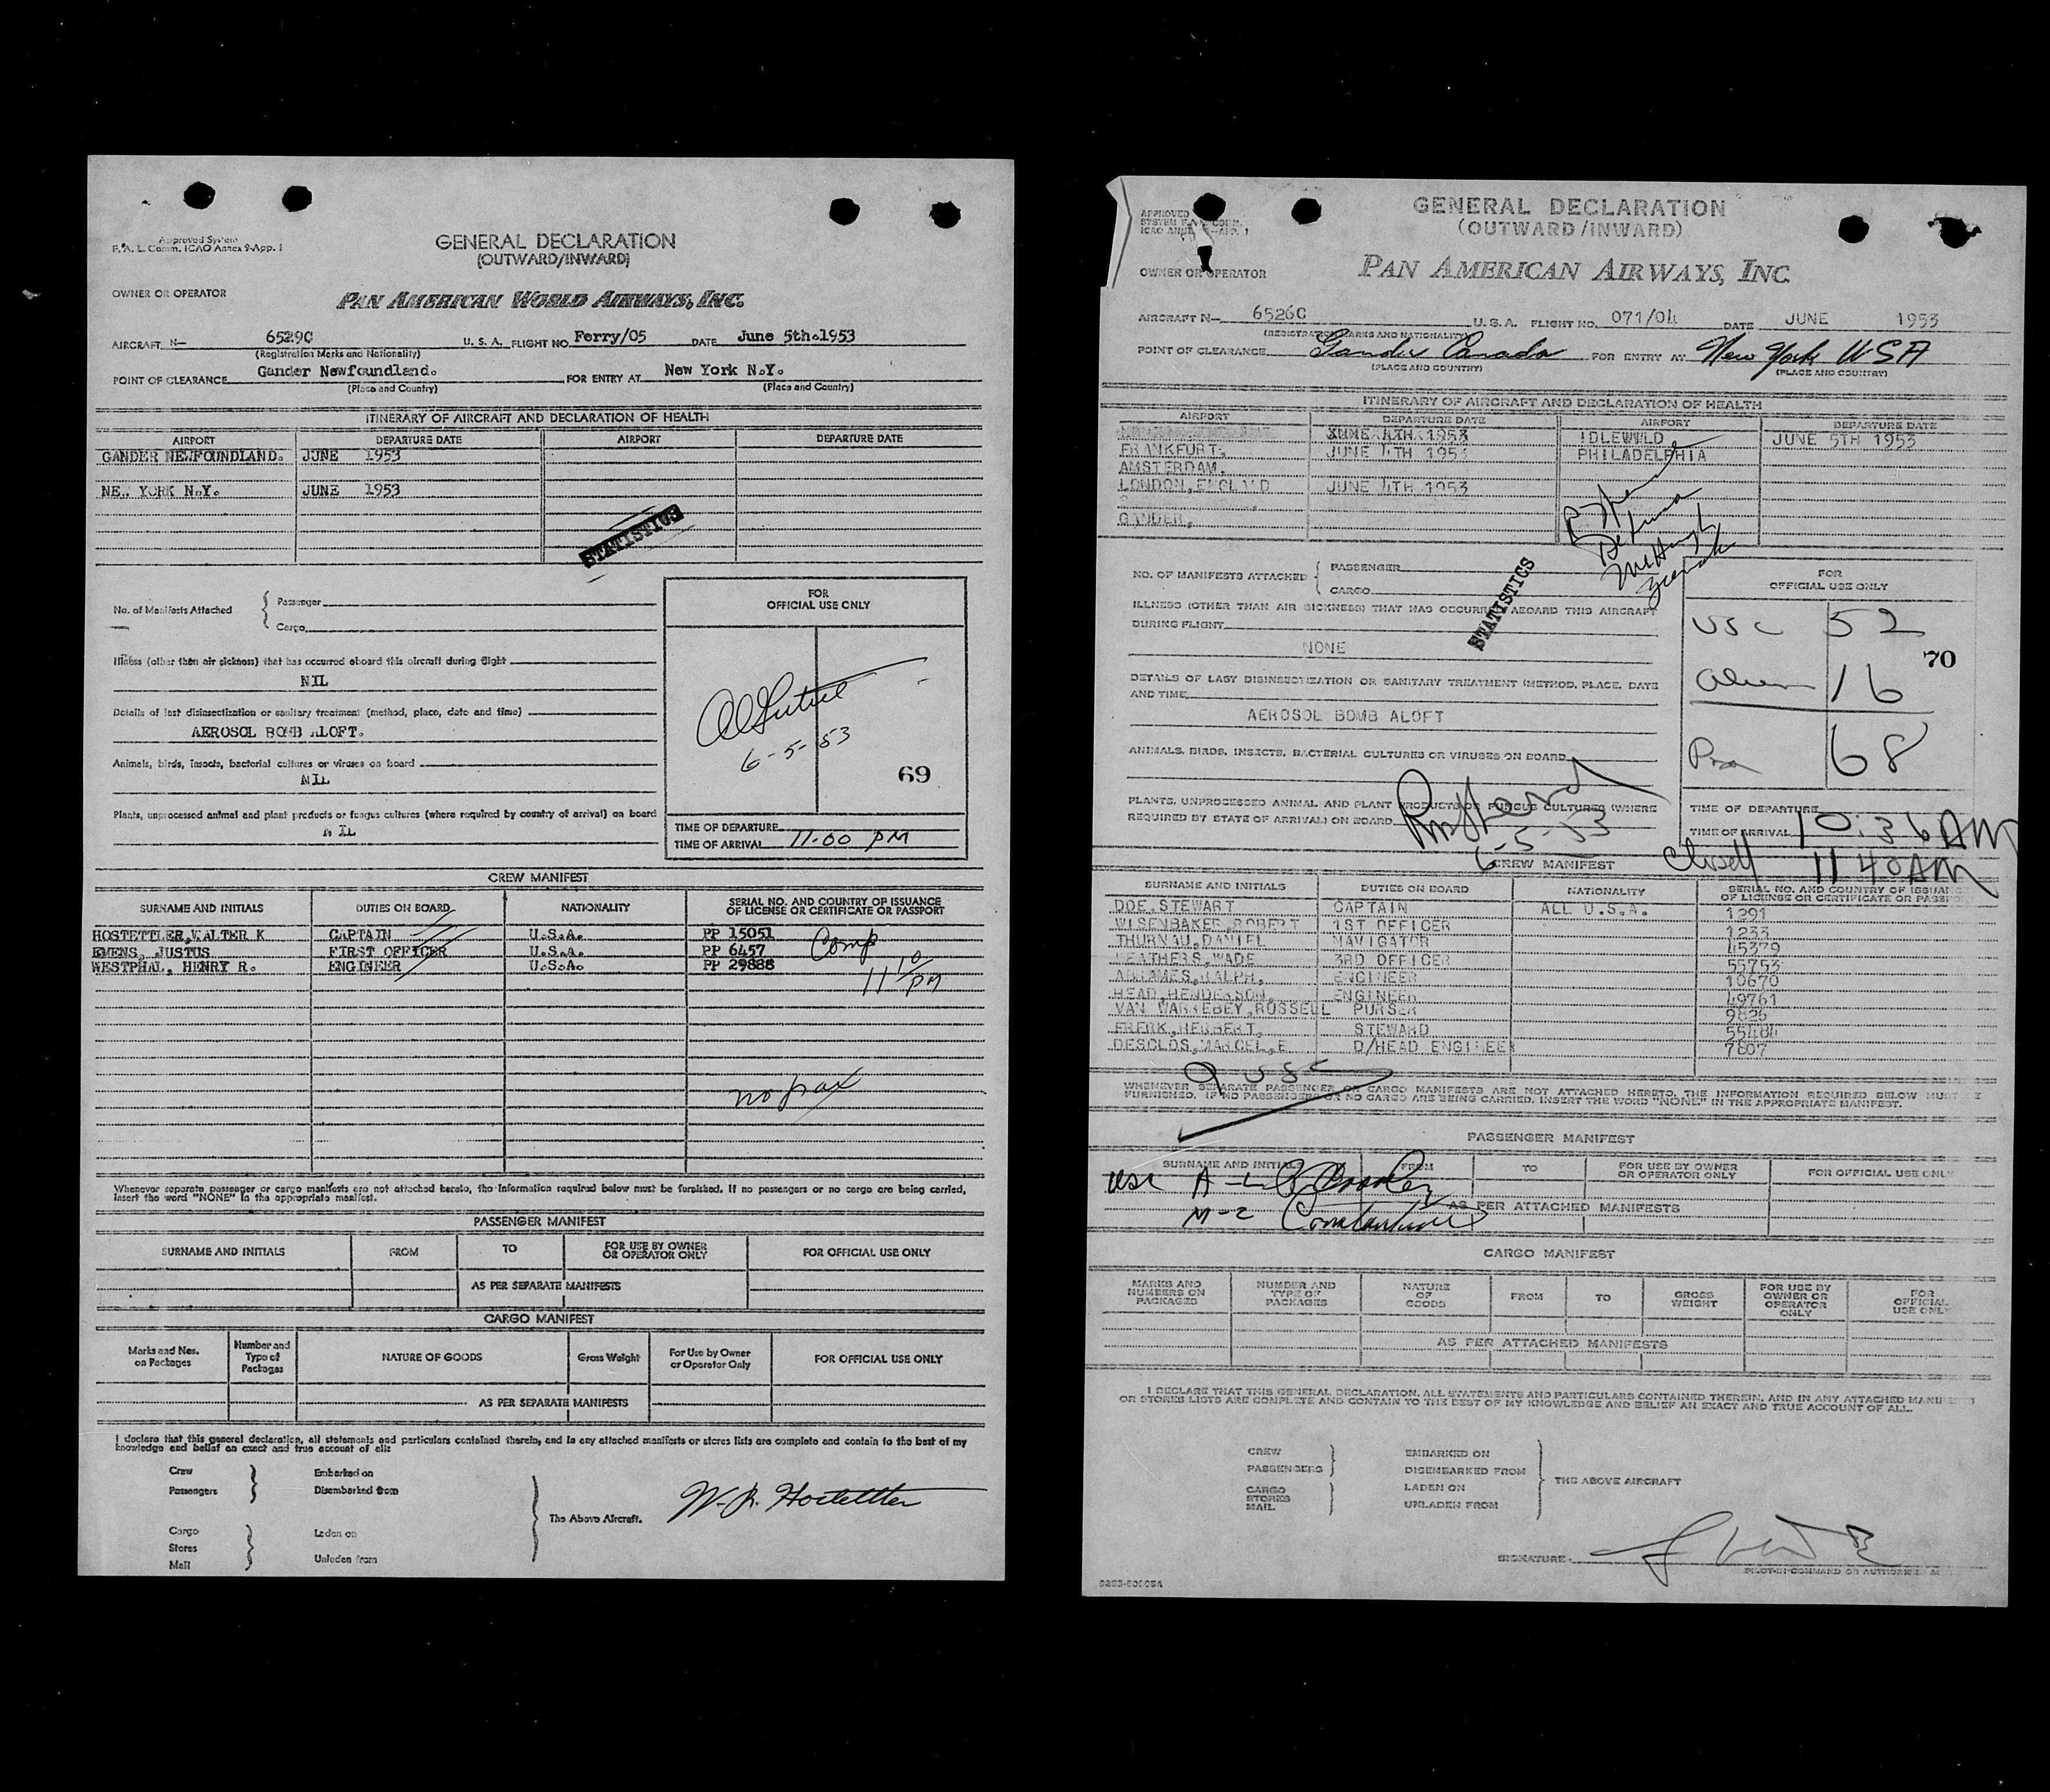 Approved System
F. A. L. Comm. ICAO Annex 9-App. 1
GENERAL DECLARATION
(OUTWARD/INWARD)
OWNER OR OPERATOR
PAN AMERICAN WORLD AIRWAYS, INC.
AIRCRAFT N— 6529C U. S. A. FLIGHT NO. Ferry/05 DATE June 5th.1953
(Registration Marks and Nationality)
POINT OF CLEARANCE Gander Newfoundland. FOR ENTRY AT New York N.Y.
(Place and Country) (Place and Country)
ITINERARY OF AIRCRAFT AND DECLARATION OF HEALTH
AIRPORT DEPARTURE DATE AIRPORT DEPARTURE DATE
GANDER NEWFOUNDLAND. JUNE 1953
NEW YORK N.Y. JUNE 1953
STATISTICS
No. of Manifests Attached
Passenger
Cargo
FOR
OFFICIAL USE ONLY
Illness (other than air sickness) that has occurred aboard this aircraft during flight
NIL
Details of last disinsectization or sanitary treatment (method, place, date and time)
AEROSOL BOMB ALOFT.
6-5-53
69
Animals, birds, insects, bacterial cultures or viruses on board
NIL
Plants, unprocessed animal and plant products or fungus cultures (where required by country of arrival) on board
NIL
TIME OF DEPARTURE
TIME OF ARRIVAL 11.00 PM
CREW MANIFEST
SURNAME AND INITIALS DUTIES ON BOARD NATIONALITY SERIAL NO. AND COUNTRY OF ISSUANCE OF LICENSE OR CERTIFICATE OR PASSPORT
HOSTETTLER,WALTER K CAPTAIN U.S.A. PP 15051
EMENS, JUSTUS FIRST OFFICER U.S.A. PP 6457 Comp
WESTPHAL, HENRY R. ENGINEER U.S.A. PP 29888
11 10 PM
no pax
Whenever separate passenger or cargo manifests are not attached hereto, the information required below must be furnished. If no passengers or no cargo are being carried,
insert the word "NONE" in the appropriate manifest.
PASSENGER MANIFEST
SURNAME AND INITIALS FROM TO FOR USE BY OWNER OR OPERATOR ONLY FOR OFFICIAL USE ONLY
AS PER SEPARATE MANIFESTS
CARGO MANIFEST
Marks and Nos. on Packages Number and Type of Packages NATURE OF GOODS Gross Weight For Use by Owner or Operator Only FOR OFFICIAL USE ONLY
AS PER SEPARATE MANIFESTS
I declare that this general declaration, all statements and particulars contained therein, and in any attached manifests or stores lists are complete and contain to the best of my
knowledge and belief an exact and true account of all:
Crew Embarked on
Passengers Disembarked from
The Above Aircraft.
W. K. Hostettler
Cargo
Stores
Mail
Laden on
Unladen from
APPROVED
GENERAL DECLARATION
(OUTWARD/INWARD)
OWNER OR OPERATOR
PAN AMERICAN AIRWAYS, INC.
AIRCRAFT N— 6526C U.S.A. FLIGHT NO. 071/04 DATE JUNE 1953
(REGISTRATION MARKS AND NATIONALITY)
POINT OF CLEARANCE Gander Canada FOR ENTRY AT New York USA
(PLACE AND COUNTRY) (PLACE AND COUNTRY)
ITINERARY OF AIRCRAFT AND DECLARATION OF HEALTH
AIRPORT DEPARTURE DATE AIRPORT DEPARTURE DATE
JUNE 4TH 1953 IDLEWILD JUNE 5TH 1953
FRANKFURT. JUNE 4TH 1953 PHILADELPHIA
AMSTERDAM.
LONDON,ENGLAND JUNE 4TH 1953
GANDER,
STATISTICS
NO. OF MANIFESTS ATTACHED
PASSENGER
CARGO
FOR
OFFICIAL USE ONLY
ILLNESS (OTHER THAN AIR SICKNESS) THAT HAS OCCURRED ABOARD THIS AIRCRAFT
DURING FLIGHT
NONE
USC 52
70
Alien 16
68
DETAILS OF LAST DISINSECTIZATION OR SANITARY TREATMENT (METHOD, PLACE, DATE
AND TIME
AEROSOL BOMB ALOFT
ANIMALS, BIRDS, INSECTS, BACTERIAL CULTURES OR VIRUSES ON BOARD
PLANTS, UNPROCESSED ANIMAL AND PLANT PRODUCTS OR FUNGUS CULTURES (WHERE
REQUIRED BY STATE OF ARRIVAL) ON BOARD
6-5-53
TIME OF DEPARTURE
TIME OF ARRIVAL 10:36 AM
Closed 11 40 AM
CREW MANIFEST
SURNAME AND INITIALS DUTIES ON BOARD NATIONALITY SERIAL NO. AND COUNTRY OF ISSUANCE OF LICENSE OR CERTIFICATE OR PASSPORT
DOE,STEWART CAPTAIN ALL U.S.A. 1291
WISENBAKER,ROBERT 1ST OFFICER 1233
THURNAU,DANIEL NAVIGATOR 45379
WEATHERS,WADE 3RD OFFICER 55753
ABRAMES,RALPH, ENGINEER 10670
HEAD,HENDERSON, ENGINEER 49761
VAN WARREBEY,RUSSELL PURSER 9826
FRERK,HERBERT, STEWARD 55484
DESCLOS,MARCEL,E D/HEAD ENGINEER 7807
9 USC
WHENEVER SEPARATE PASSENGER OR CARGO MANIFESTS ARE NOT ATTACHED HERETO, THE INFORMATION REQUIRED BELOW MUST BE
FURNISHED. IF NO PASSENGERS OR NO CARGO ARE BEING CARRIED, INSERT THE WORD "NONE" IN THE APPROPRIATE MANIFEST.
PASSENGER MANIFEST
SURNAME AND INITIALS FROM TO FOR USE BY OWNER OR OPERATOR ONLY FOR OFFICIAL USE ONLY
USC A-L
AS PER ATTACHED MANIFESTS
M-Z
CARGO MANIFEST
MARKS AND NUMBERS ON PACKAGES NUMBER AND TYPE OF PACKAGES NATURE OF GOODS FROM TO GROSS WEIGHT FOR USE BY OWNER OR OPERATOR ONLY FOR OFFICIAL USE ONLY
AS PER ATTACHED MANIFESTS
I DECLARE THAT THIS GENERAL DECLARATION, ALL STATEMENTS AND PARTICULARS CONTAINED THEREIN, AND IN ANY ATTACHED MANIFESTS
OR STORES LISTS ARE COMPLETE AND CONTAIN TO THE BEST OF MY KNOWLEDGE AND BELIEF AN EXACT AND TRUE ACCOUNT OF ALL.
CREW EMBARKED ON
PASSENGERS DISEMBARKED FROM
THE ABOVE AIRCRAFT
CARGO LADEN ON
STORES
MAIL UNLADEN FROM
SIGNATURE
PILOT-IN-COMMAND OR AUTHORIZED